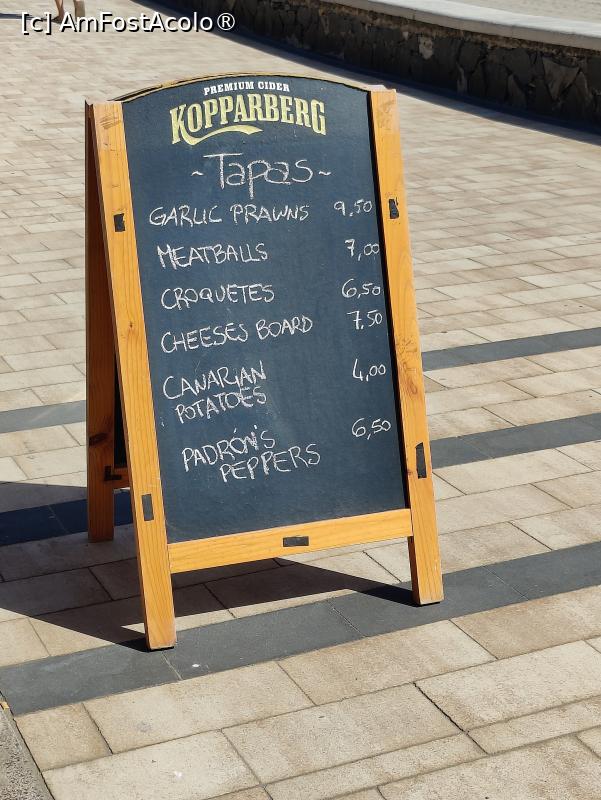 [c] AmFostAcolo®
PREMIUM CIDER
KOPPARBERG
~Tapas~
GARLIC PRAWNS 9,50
MEATBALLS 7,00
CROQUETES 6,50
CHEESES BOARD 7,50
CANARIAN 4,00
POTATOES
PADRÓN'S 6,50
PEPPERS